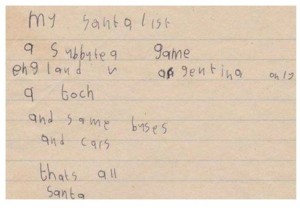 my santa list
a subbutea game
england v argentina only
a toch
and same buses
and cars
thats all
santa